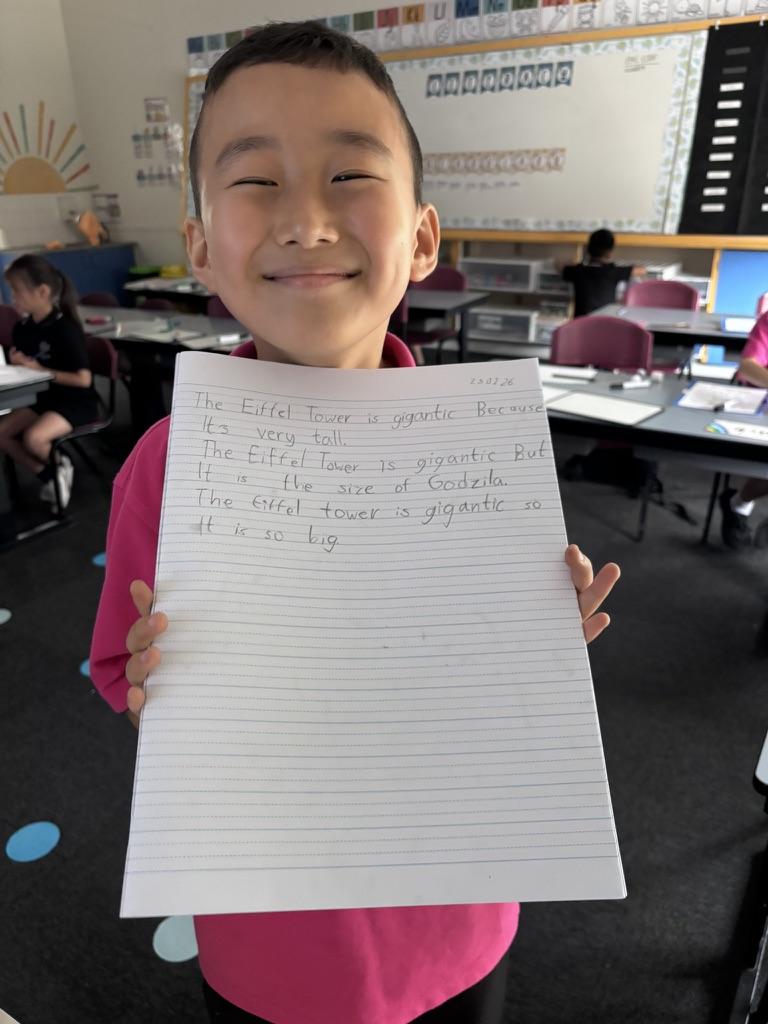 230226
The Eiffel Tower is gigantic Because
It's very tall.
The Eiffel Tower is gigantic But
It is the size of Godzila.
The Eiffel tower is gigantic so
It is so big